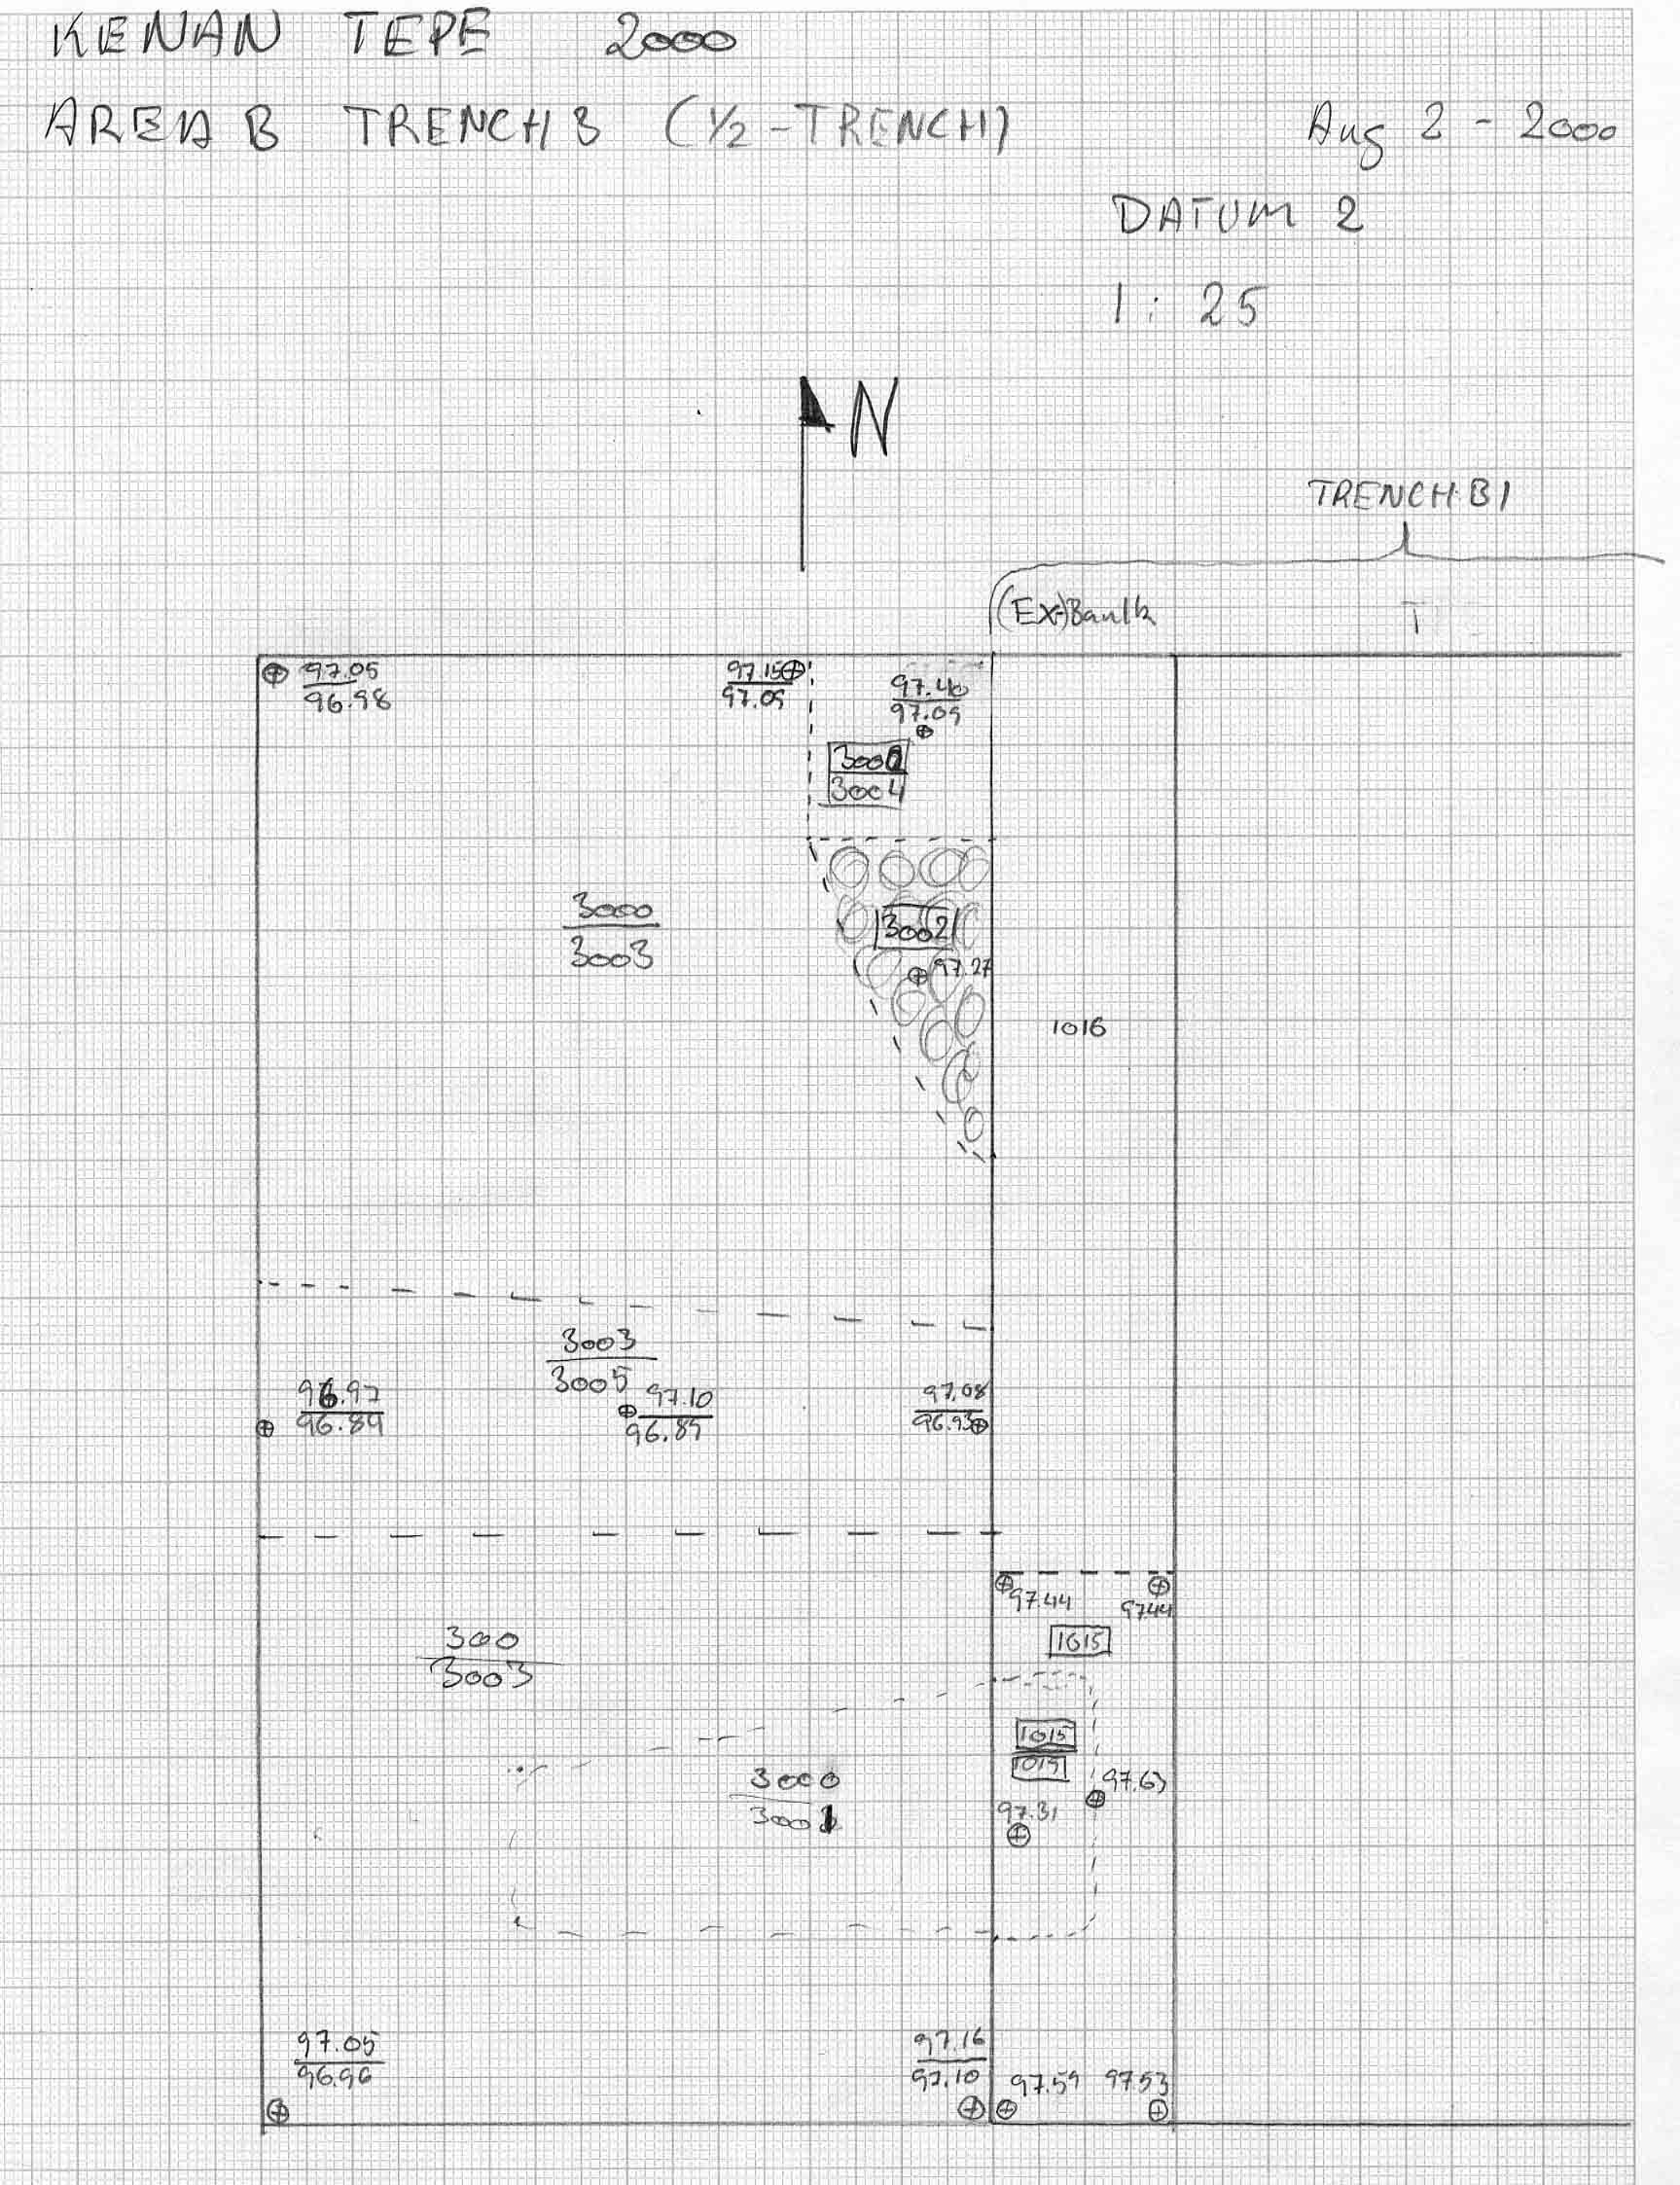 KENAN TEPE 2000
AREA B TRENCH 3 (1/2-TRENCH)
Aug 2 - 2000
DATUM 2
1 : 25
N
TRENCH B1
(Ex-)Baulk
T
97.05
96.98
97.15
97.09
97.40
97.09
3004
3000
3003
3002
97.27
1016
3003
3005
96.97
96.89
97.10
96.89
97.08
96.93
97.44
97.44
1015
300
3003
1015
1019
97.63
97.31
3000
3001
97.05
96.96
97.16
97.10
97.59
97.53